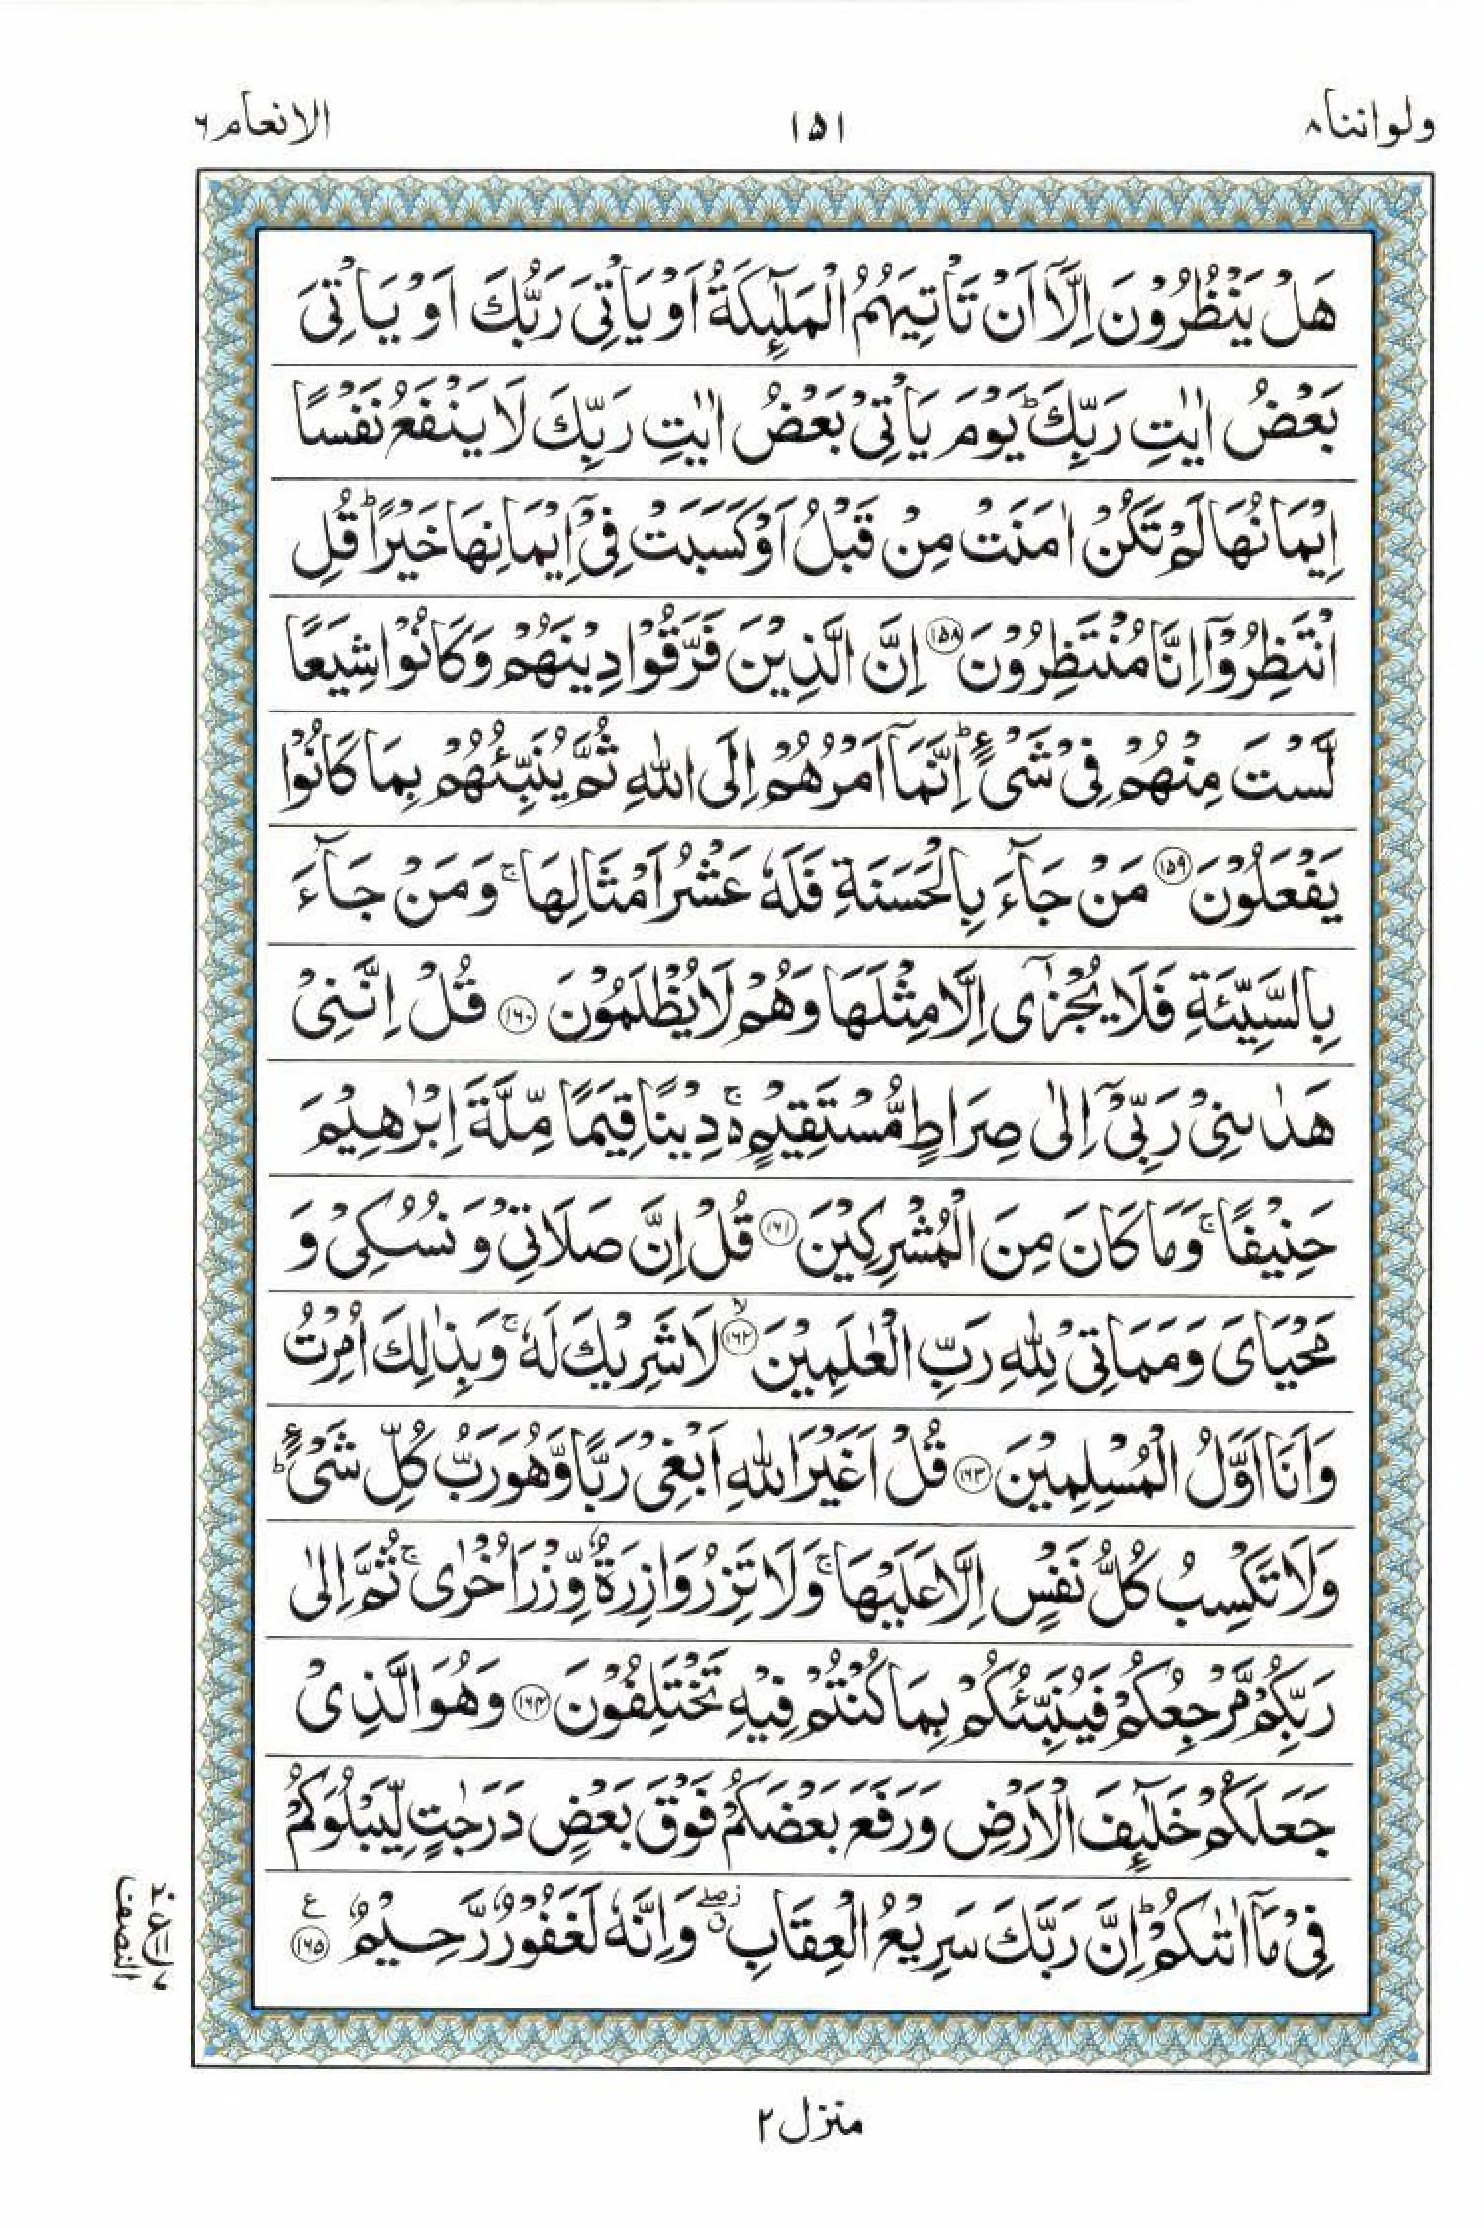 ولواننا ٨
١٥١
الانعام ٦
هَلْ يَنْظُرُوْنَ اِلَّاۤ اَنْ تَاْتِيَهُمُ الْمَلٰٓئِكَةُ اَوْ يَاْتِيَ رَبُّكَ اَوْ يَاْتِيَ
بَعْضُ اٰيٰتِ رَبِّكَ ؕ يَوْمَ يَاْتِيْ بَعْضُ اٰيٰتِ رَبِّكَ لَا يَنْفَعُ نَفْسًا
اِيْمَانُهَا لَمْ تَكُنْ اٰمَنَتْ مِنْ قَبْلُ اَوْ كَسَبَتْ فِيْۤ اِيْمَانِهَا خَيْرًا ؕ قُلِ
انْتَظِرُوْۤا اِنَّا مُنْتَظِرُوْنَ ﴿١٥٨﴾ اِنَّ الَّذِيْنَ فَرَّقُوْا دِيْنَهُمْ وَكَانُوْا شِيَعًا
لَّسْتَ مِنْهُمْ فِيْ شَيْءٍ ؕ اِنَّمَاۤ اَمْرُهُمْ اِلَى اللّٰهِ ثُمَّ يُنَبِّئُهُمْ بِمَا كَانُوْا
يَفْعَلُوْنَ ﴿١٥٩﴾ مَنْ جَآءَ بِالْحَسَنَةِ فَلَهٗ عَشْرُ اَمْثَالِهَا ۚ وَمَنْ جَآءَ
بِالسَّيِّئَةِ فَلَا يُجْزٰۤى اِلَّا مِثْلَهَا وَهُمْ لَا يُظْلَمُوْنَ ﴿١٦٠﴾ قُلْ اِنَّنِيْ
هَدٰىنِيْ رَبِّيْۤ اِلٰى صِرَاطٍ مُّسْتَقِيْمٍ ۚ۬ دِيْنًا قِيَمًا مِّلَّةَ اِبْرٰهِيْمَ
حَنِيْفًا ۚ وَمَا كَانَ مِنَ الْمُشْرِكِيْنَ ﴿١٦١﴾ قُلْ اِنَّ صَلَاتِيْ وَ نُسُكِيْ وَ
مَحْيَايَ وَ مَمَاتِيْ لِلّٰهِ رَبِّ الْعٰلَمِيْنَ ﴿١٦٢﴾ۙ لَا شَرِيْكَ لَهٗ ۚ وَبِذٰلِكَ اُمِرْتُ
وَاَنَا اَوَّلُ الْمُسْلِمِيْنَ ﴿١٦٣﴾ قُلْ اَغَيْرَ اللّٰهِ اَبْغِيْ رَبًّا وَّهُوَ رَبُّ كُلِّ شَيْءٍ ؕ
وَلَا تَكْسِبُ كُلُّ نَفْسٍ اِلَّا عَلَيْهَا ۚ وَلَا تَزِرُ وَازِرَةٌ وِّزْرَ اُخْرٰى ۚ ثُمَّ اِلٰى
رَبِّكُمْ مَّرْجِعُكُمْ فَيُنَبِّئُكُمْ بِمَا كُنْتُمْ فِيْهِ تَخْتَلِفُوْنَ ﴿١٦٤﴾ وَهُوَ الَّذِيْ
جَعَلَكُمْ خَلٰٓئِفَ الْاَرْضِ وَرَفَعَ بَعْضَكُمْ فَوْقَ بَعْضٍ دَرَجٰتٍ لِّيَبْلُوَكُمْ
فِيْ مَاۤ اٰتٰىكُمْ ؕ اِنَّ رَبَّكَ سَرِيْعُ الْعِقَابِ ۖ وَاِنَّهٗ لَغَفُوْرٌ رَّحِيْمٌ ﴿١٦٥﴾ ع
النصف
منزل ٢